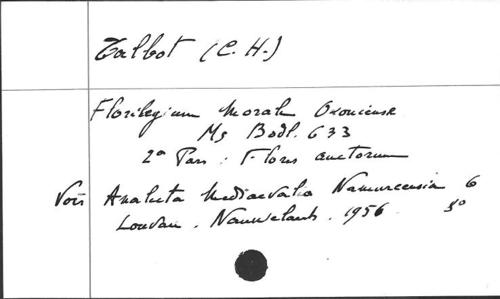 Talbot (C. H.)
Florilegium Morale Oxoniense
Ms Bodl. 633
2a Pars : Flores auctorum
Voir Analecta Mediaevalia Namurcensia 6
Louvain. Nauwelaerts. 1956. 8°